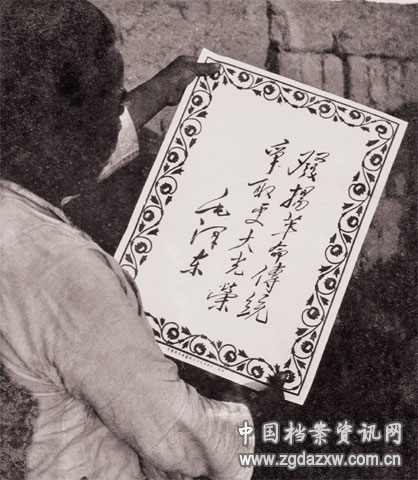 發揚革命傳統
爭取更大光榮
毛泽东
中国档案资讯网
www.zgdazxw.com.cn